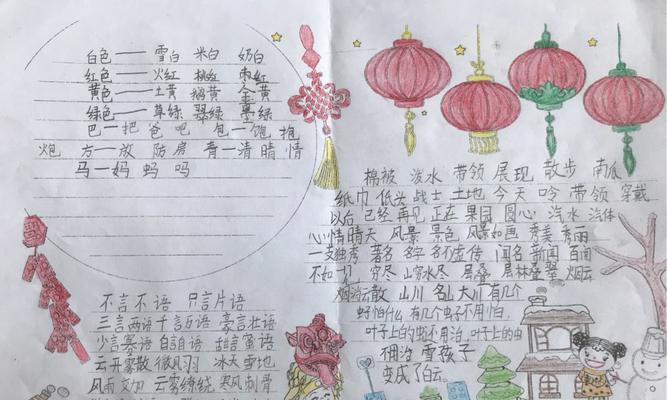 白色——雪白 米白 奶白
红色——火红 桃红 枣红
黄色——土黄 鹅黄 金黄
绿色——草绿 翠绿 墨绿
巴—把 爸 吧 包—饱 抱
炮 方—放 防 房 青—清 晴 情
马—妈 蚂 吗
棉被 泼水 带领 展现 散步 南瓜
纸巾 低头 战士 土地 今天 带领 穿戴
以后 已经 再见 正在 果园 圆心 汽水 汽体
心情 晴天 风景 景色 风景如画 秀美 秀丽
一支独秀 著名 名字 名不虚传 闻名 新闻 百闻
不如一切 穷尽 山穷水尽 层叠 层林叠翠 烟云
烟消云散 山川 名山大川 有几个
虫子怕什么 有几个虫子不用怕
叶子上的虫不用治 叶子上的虫
用治 雪孩子
变成了白云
不言不语 只言片语
三言两语 千言万语 豪言壮语
少言寡语 自言自语
云开雾散 微风 冰天雪地
云雾缭绕 寒风刺骨